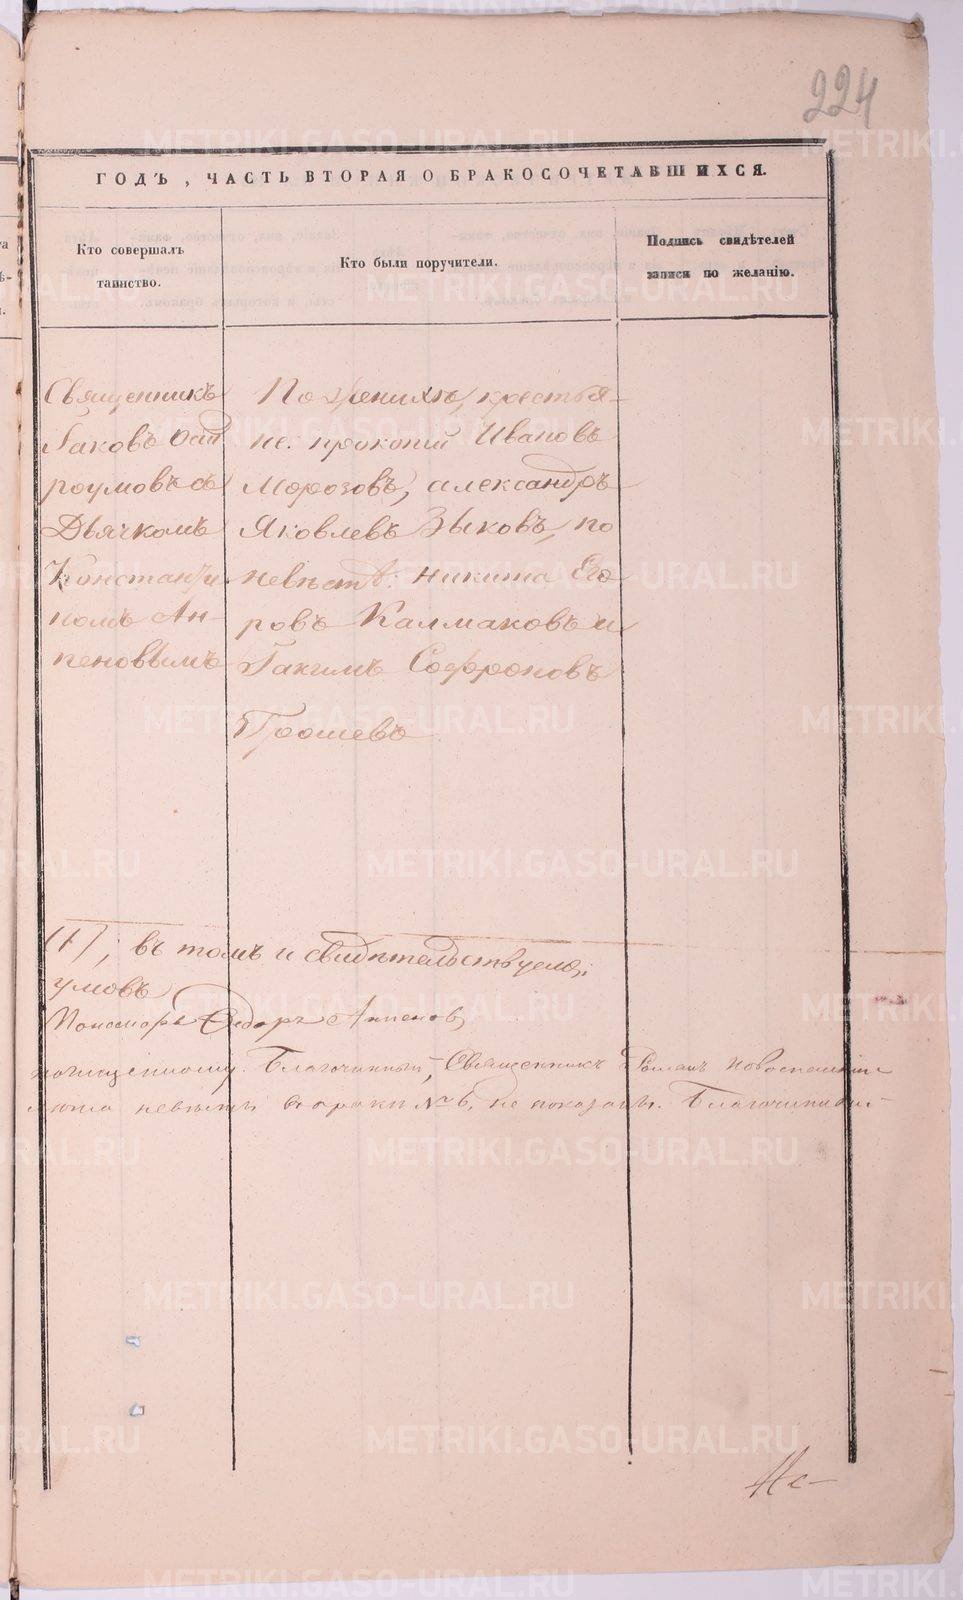 224
ГОДЪ, ЧАСТЬ ВТОРАЯ О БРАКОСОЧЕТАВШИХСЯ.
Кто совершалъ
таинство.
Кто были поручители.
Подпись свидѣтелей
записи по желанію.
Священникъ
Іаковъ Ост
роумовъ съ
Дьячкомъ
Константи
номъ Ан-
пеновымъ
По женихѣ, крестья-
не: прокопій Ивановъ
Морозовъ, александръ
Яковлевъ Зыковъ, по
невѣстѣ: никита Его
ровъ Калмаковъ и
Іакимъ Софроновъ
Грошевъ
(1), въ томъ и свидѣтельствуемъ:
умовъ
Пономарь Ѳедоръ
Благочинный, Священникъ Романъ
невѣсты въ бракѣ № 6, не показаны. Благочинный
METRIKI.GASO-URAL.RU